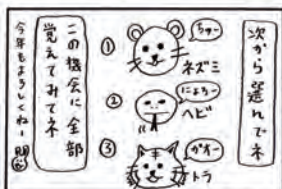 次から選んでネ
① ちゅー
ネズミ
② にょろー
ヘビ
③ がおー
トラ
この機会に全部
覚えてみてネ
今年もよろしくねー